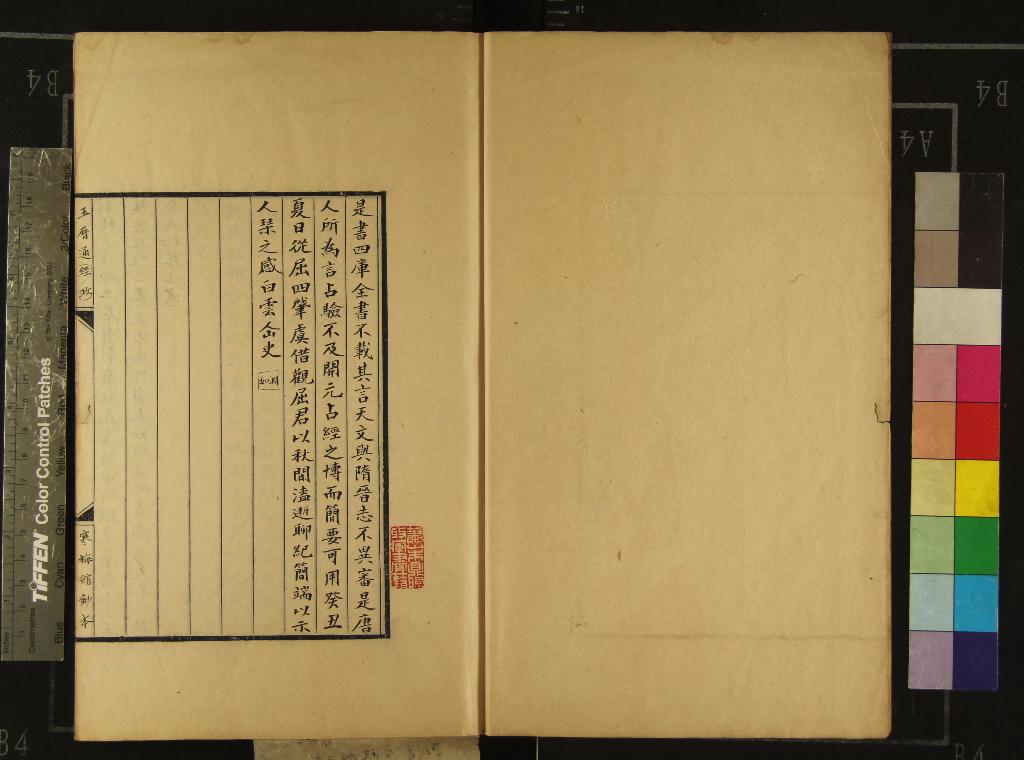 是書四庫全書不載其言天文與隋晉志不異審是唐
人所為言占驗不及開元占經之博而簡要可用癸丑
夏日從屈四肇虞借觀屈君以秋間溘逝聊紀簡端以示
人琹之感白雲仚史
五曆通經 抄
寒梅館鈔本
TIFFEN Color Control Patches
© The Tiffen Company, 2000
Inches
Centimetres
Blue
Cyan
Green
Yellow
Red
Magenta
White
3/Color
Black
B4
B4
A4
B4
B4